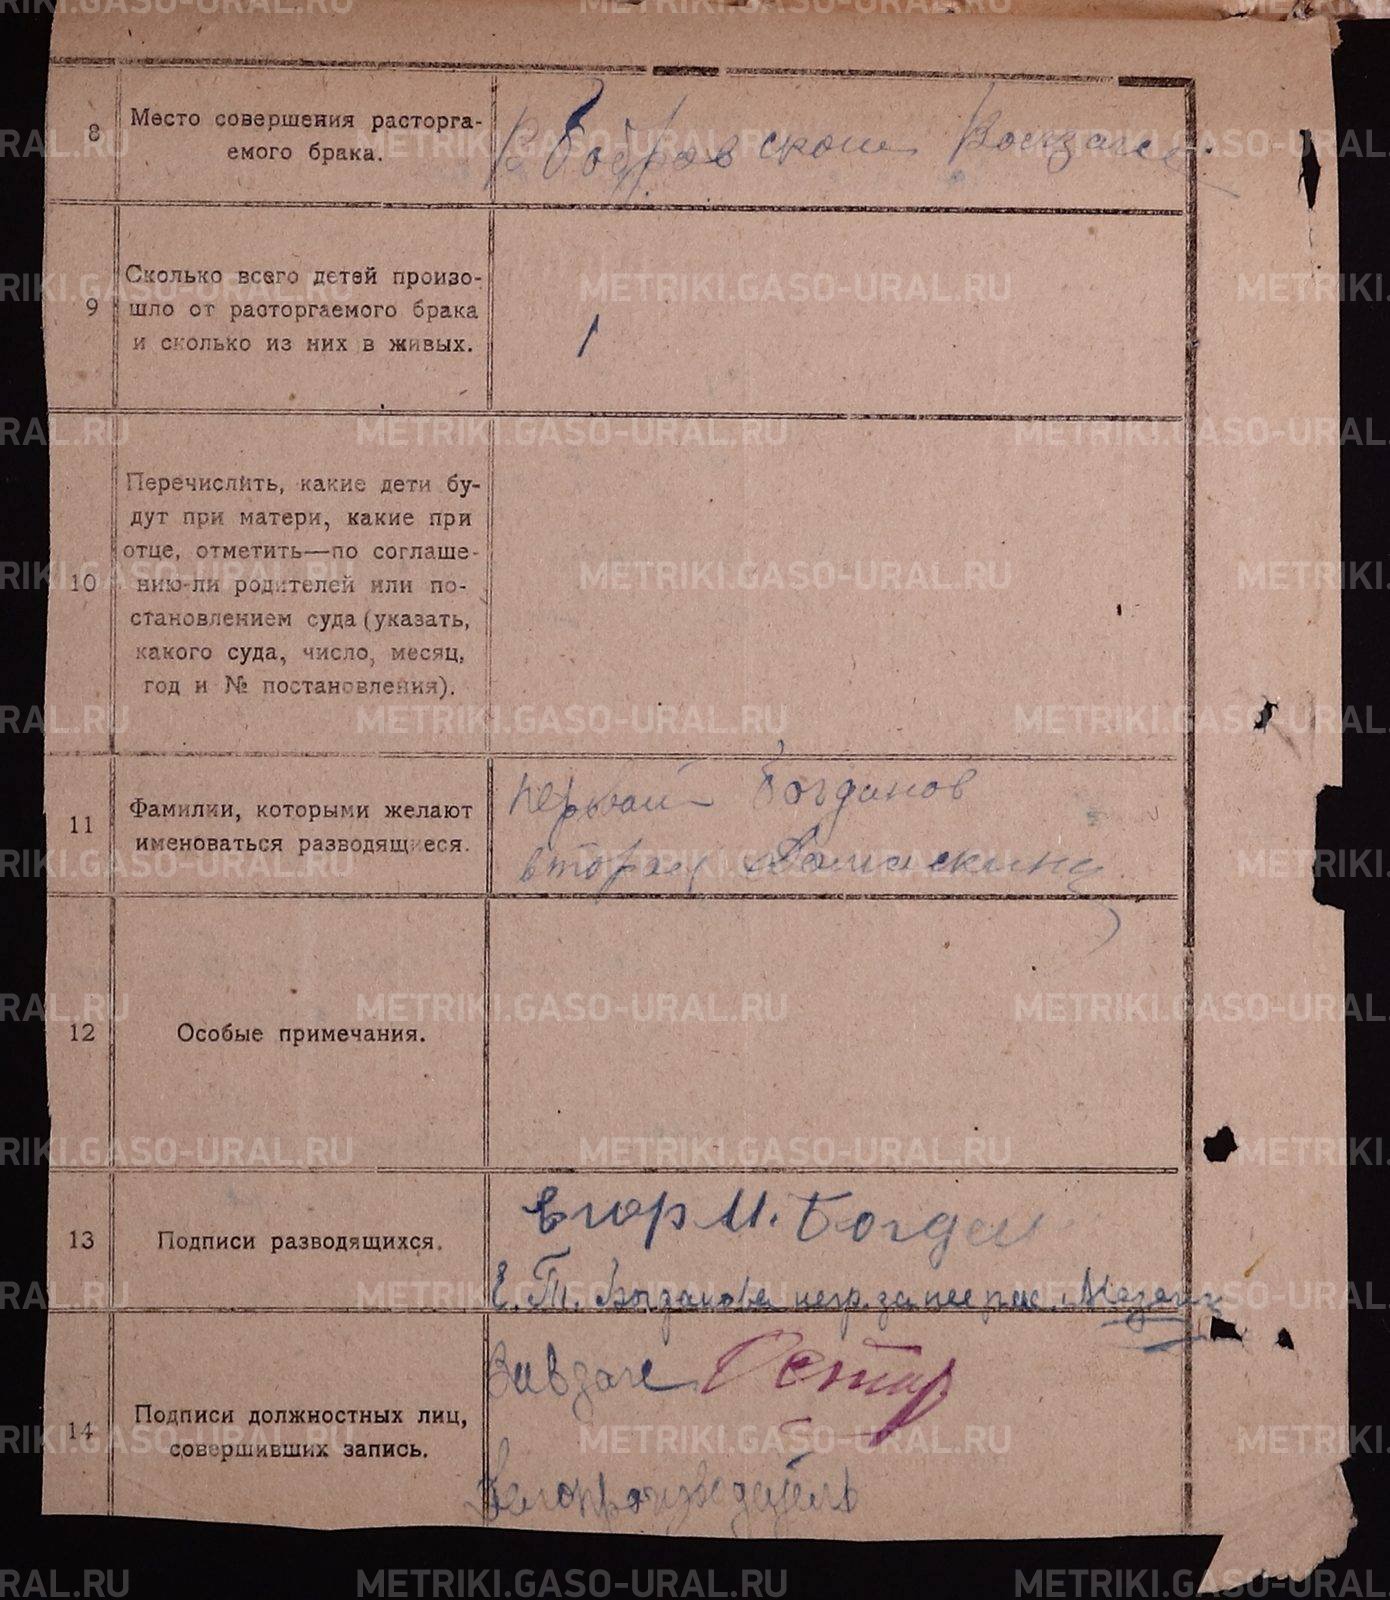 8
Место совершения расторга-
емого брака.
9
Сколько всего детей произо-
шло от расторгаемого брака
и сколько из них в живых.
1
10
Перечислить, какие дети бу-
дут при матери, какие при
отце, отметить—по соглаше-
нию-ли родителей или по-
становлением суда (указать,
какого суда, число, месяц,
год и № постановления).
11
Фамилии, которыми желают
именоваться разводящиеся.
первый Богданов
вторая
12
Особые примечания.
13
Подписи разводящихся.
Егор М. Богдан
Е. Т. Богданова негр. за нее рас.
14
Подписи должностных лиц,
совершивших запись.
Завзагс
Делопроизводитель
METRIKI.GASO-URAL.RU